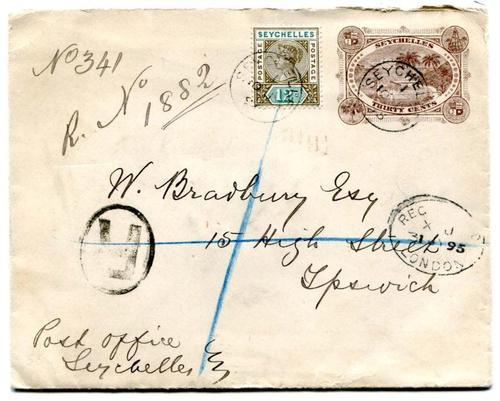 No 341
R. No 1882
SEYCHELLES
POSTAGE
POSTAGE
12c
SEYCHELLES
THIRTY CENTS
SEYCHEL
W. Bradbury Esq
15 High Street
Ipswich
R
REG
LONDON
95
Post office
Seychelles